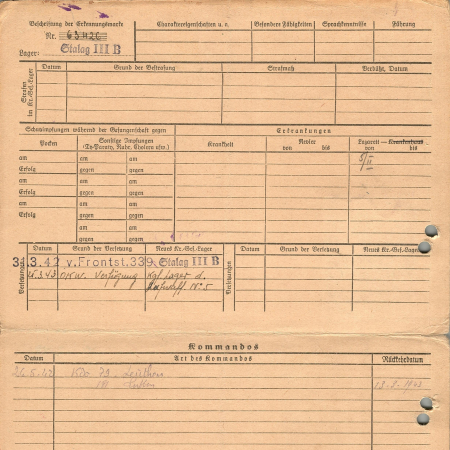 Beschriftung der Erkennungsmarke
Charaktereigenschaften u. s.
Besondere Fähigkeiten
Sprachkenntnisse
Führung
Nr.
Lager: Stalag III B
Strafen im Kr.-Gef.-Lager
Datum
Grund der Bestrafung
Strafmaß
Verbüßt, Datum
Schutzimpfungen während der Gefangenschaft gegen
Erkrankungen
Pocken
Sonstige Impfungen
(Ty-Paraty, Ruhr, Cholera usw.)
Krankheit
Revier
von bis
Lazarett — Krankenhaus
von bis
am am am
Erfolg gegen gegen
am am am
Erfolg gegen gegen
am am am
Erfolg gegen gegen
am am
gegen gegen
5/II
Datum
Grund der Versetzung
Neues Kr.-Gef.-Lager
Datum
Grund der Versetzung
Neues Kr.-Gef.-Lager
Versetzungen
Versetzungen
31.3.42 v. Frontst. 339 Stalag III B
OKW. Verfügung Kgf. Lager d.
Luftwaff. No 5
Kommandos
Datum
Art des Kommandos
Rückkehrdatum